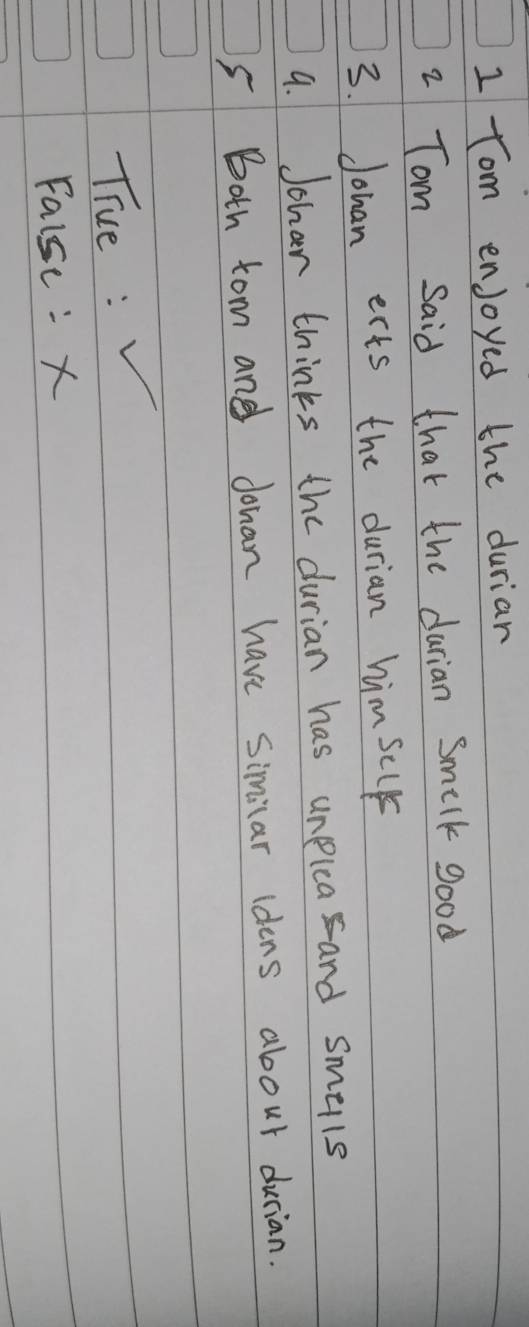 1 Tom enjoyed the durian
2 Tom said that the durian smelk good
3. Johan eats the durian himself
4. Johan thinks the durian has unpleasand smells
5 Both tom and Johan have similar idens about durian.
True : ✓
False : ×